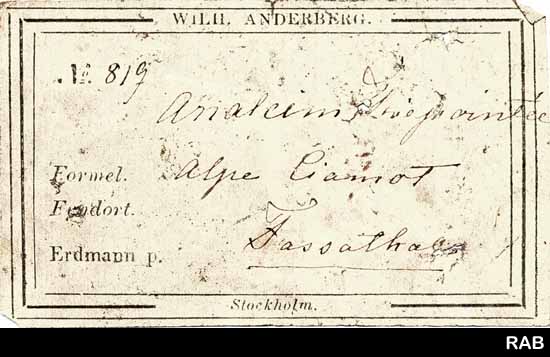 WILH. ANDERBERG.
No. 819
Analcim
Formel. Alpe Ciamot
Fyndort.
Fassathal
Erdmann p.
Stockholm.
RAB